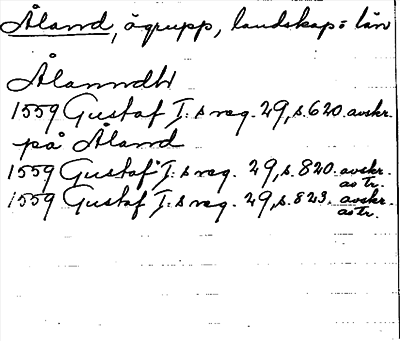 Åland, ögrupp, landskap = län
Ålanndh
1559 Gustaf I:s reg. 29, s. 620. avskr.
på Åland
1559 Gustaf I:s reg. 29, s. 820. avskr. av tr.
1559 Gustaf I:s reg. 29, s. 823. avskr. av tr.